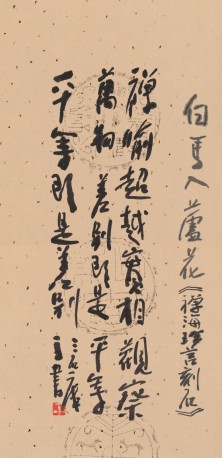 白馬入蘆花
《禪海珍言刻石》
禪喻超越實相觀察
萬物差別即是平等
平等即是差別